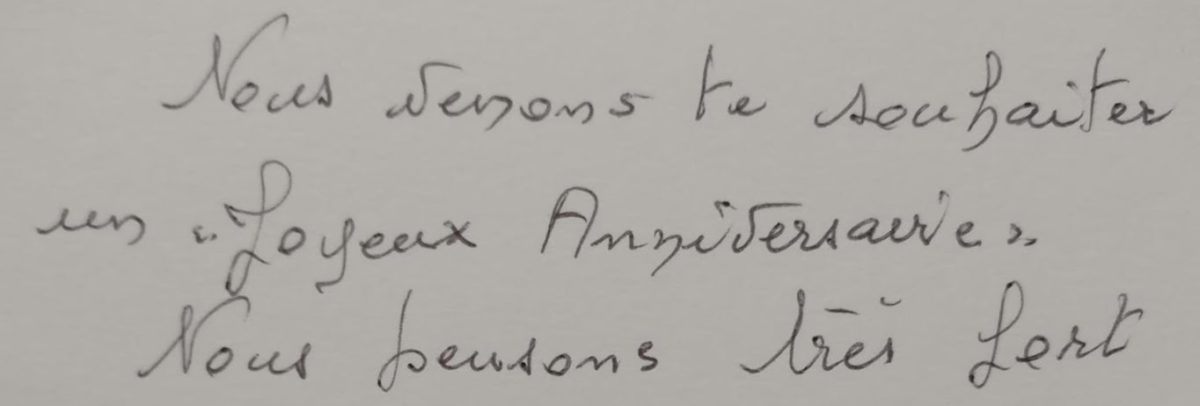 Nous venons te souhaiter
un "Joyeux Anniversaire".
Nous pensons très fort